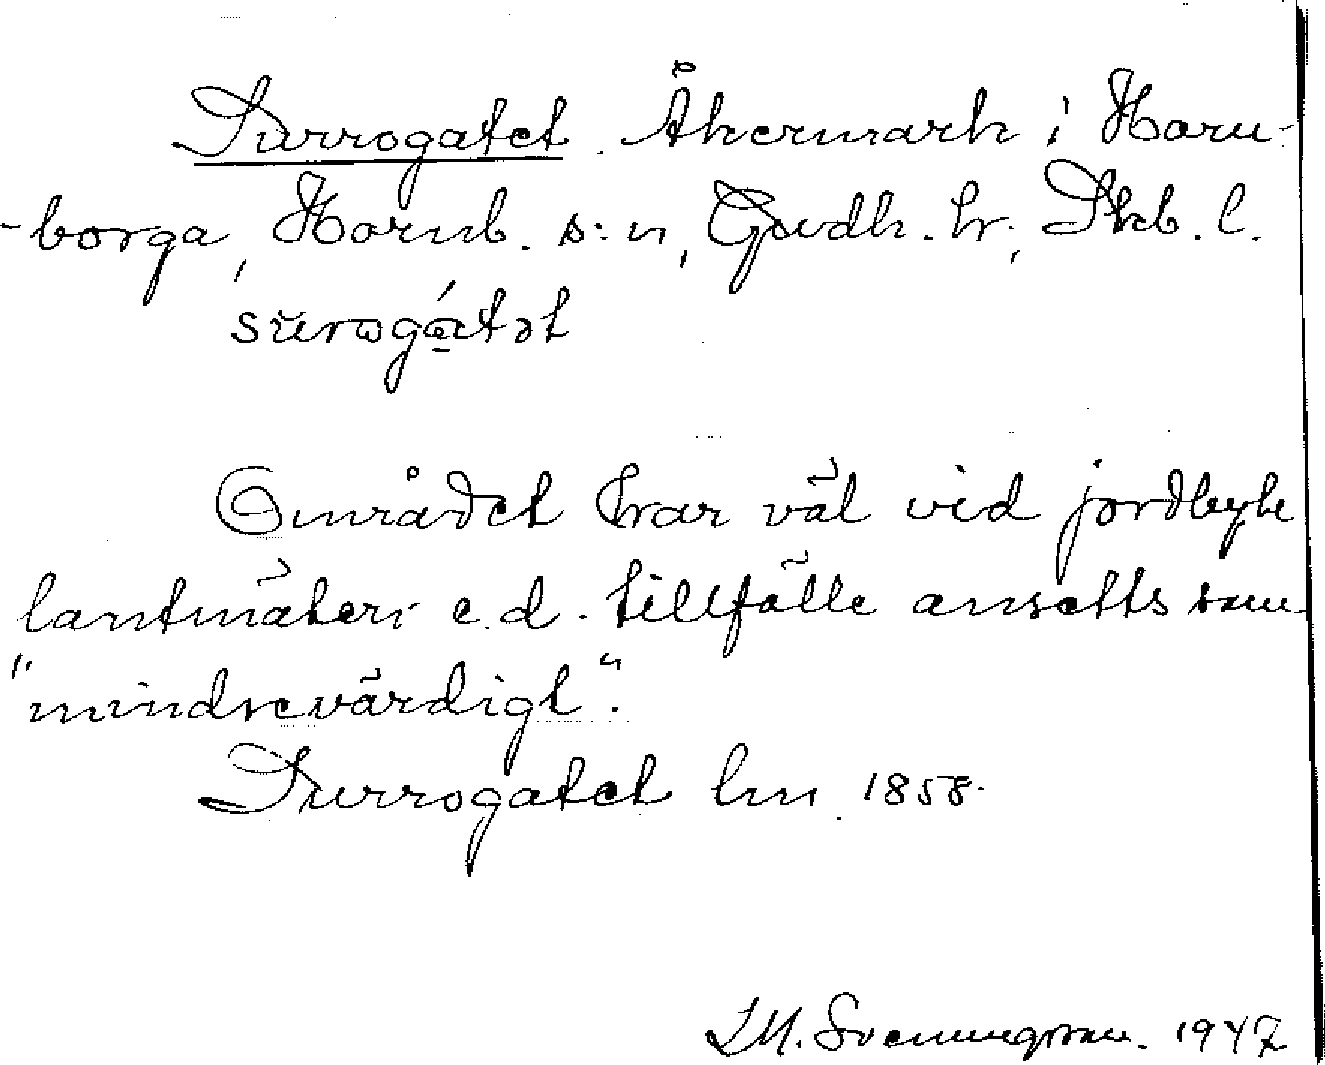 Surrogatet. Åkermark i Horn-
-borga, Hornb. s:n, Gudh. hr, Skb. l.
surogatət
Området har väl vid jordbyte
lantmäteri e.d. tillfälle ansetts som
"mindrevärdigt".
Surrogatet lm 1858.
Svenungsson. 1947